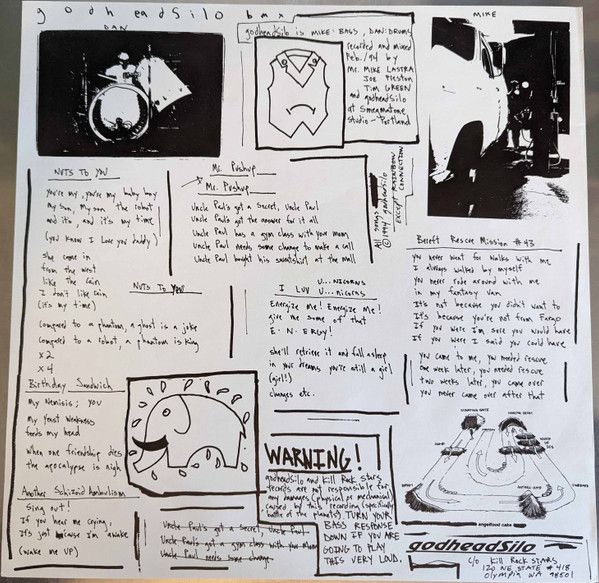 godheadSilo bmx
DAN
godheadSilo is MIKE: BASS, DAN: DRUMS
recorded and mixed
Feb./94 by
Mr. MIKE LASTRA
JOE Preston
TIM GREEN
and godheadSilo
at Smegmatone
studio - Portland
MIKE
NUTS TO YOU
you're my, you're my baby boy
my sun, my son the robot
and it's, and it's my time
(you know I love you daddy)
she came in
from the west
like the rain
I don't like rain
(it's my time)
NUTS TO YOU
compared to a phantom, a ghost is a joke
compared to a robot, a phantom is king
x2
x4
Mr. Pushup
Mr. Pushup
Uncle Paul's got a secret, Uncle Paul
Uncle Paul's got the answer for it all
Uncle Paul has a gym class with your mom
Uncle Paul needs some change to make a call
Uncle Paul bought his sweatshirt at the mall
All songs
©1994 godheadSilo
EXCEPT RAINBOW
CONNECTION
U...nicorns
I LUV U...nicorns
Energize me! Energize me!
give me some of that
E.N.ERGY!
she'll retrieve it and fall asleep
in your dreams you're still a girl
(girl!)
changes etc.
Bereft Rescue Mission #43
you never went for walks with me
I always walked by myself
you never rode around with me
in my fantasy van
It's not because you didn't want to
It's because you're not from Fargo
If you were I'm sure you would have
If you were I said you could have
you came to me, you needed rescue
one week later, you needed rescue
two weeks later, you came over
you never came over after that
Birthday Sandwich
my Nemisis; you
my yeast weakness
feeds my head
when one friendship dies
the apocalypse is nigh
Another Schizoid Ambulism
Sing out!
If you hear me crying,
It's just because I'm awake
(wake me up)
Uncle Paul's got a secret, Uncle Paul
Uncle Paul's got a gym class with your Mom
Uncle Paul needs some change
WARNING!
godheadSilo and Kill Rock Stars
records are not responsible for
any damages (physical or mechanical)
caused by this recording (specifically
both of the planets) TURN YOUR
BASS RESPONSE
DOWN IF YOU ARE
GOING TO PLAY
THIS VERY LOUD.
STARTING GATE
angelfood cake
godheadSilo
c/o Kill Rock STARS
120 NE STATE #418
OLYMPIA WA 98501